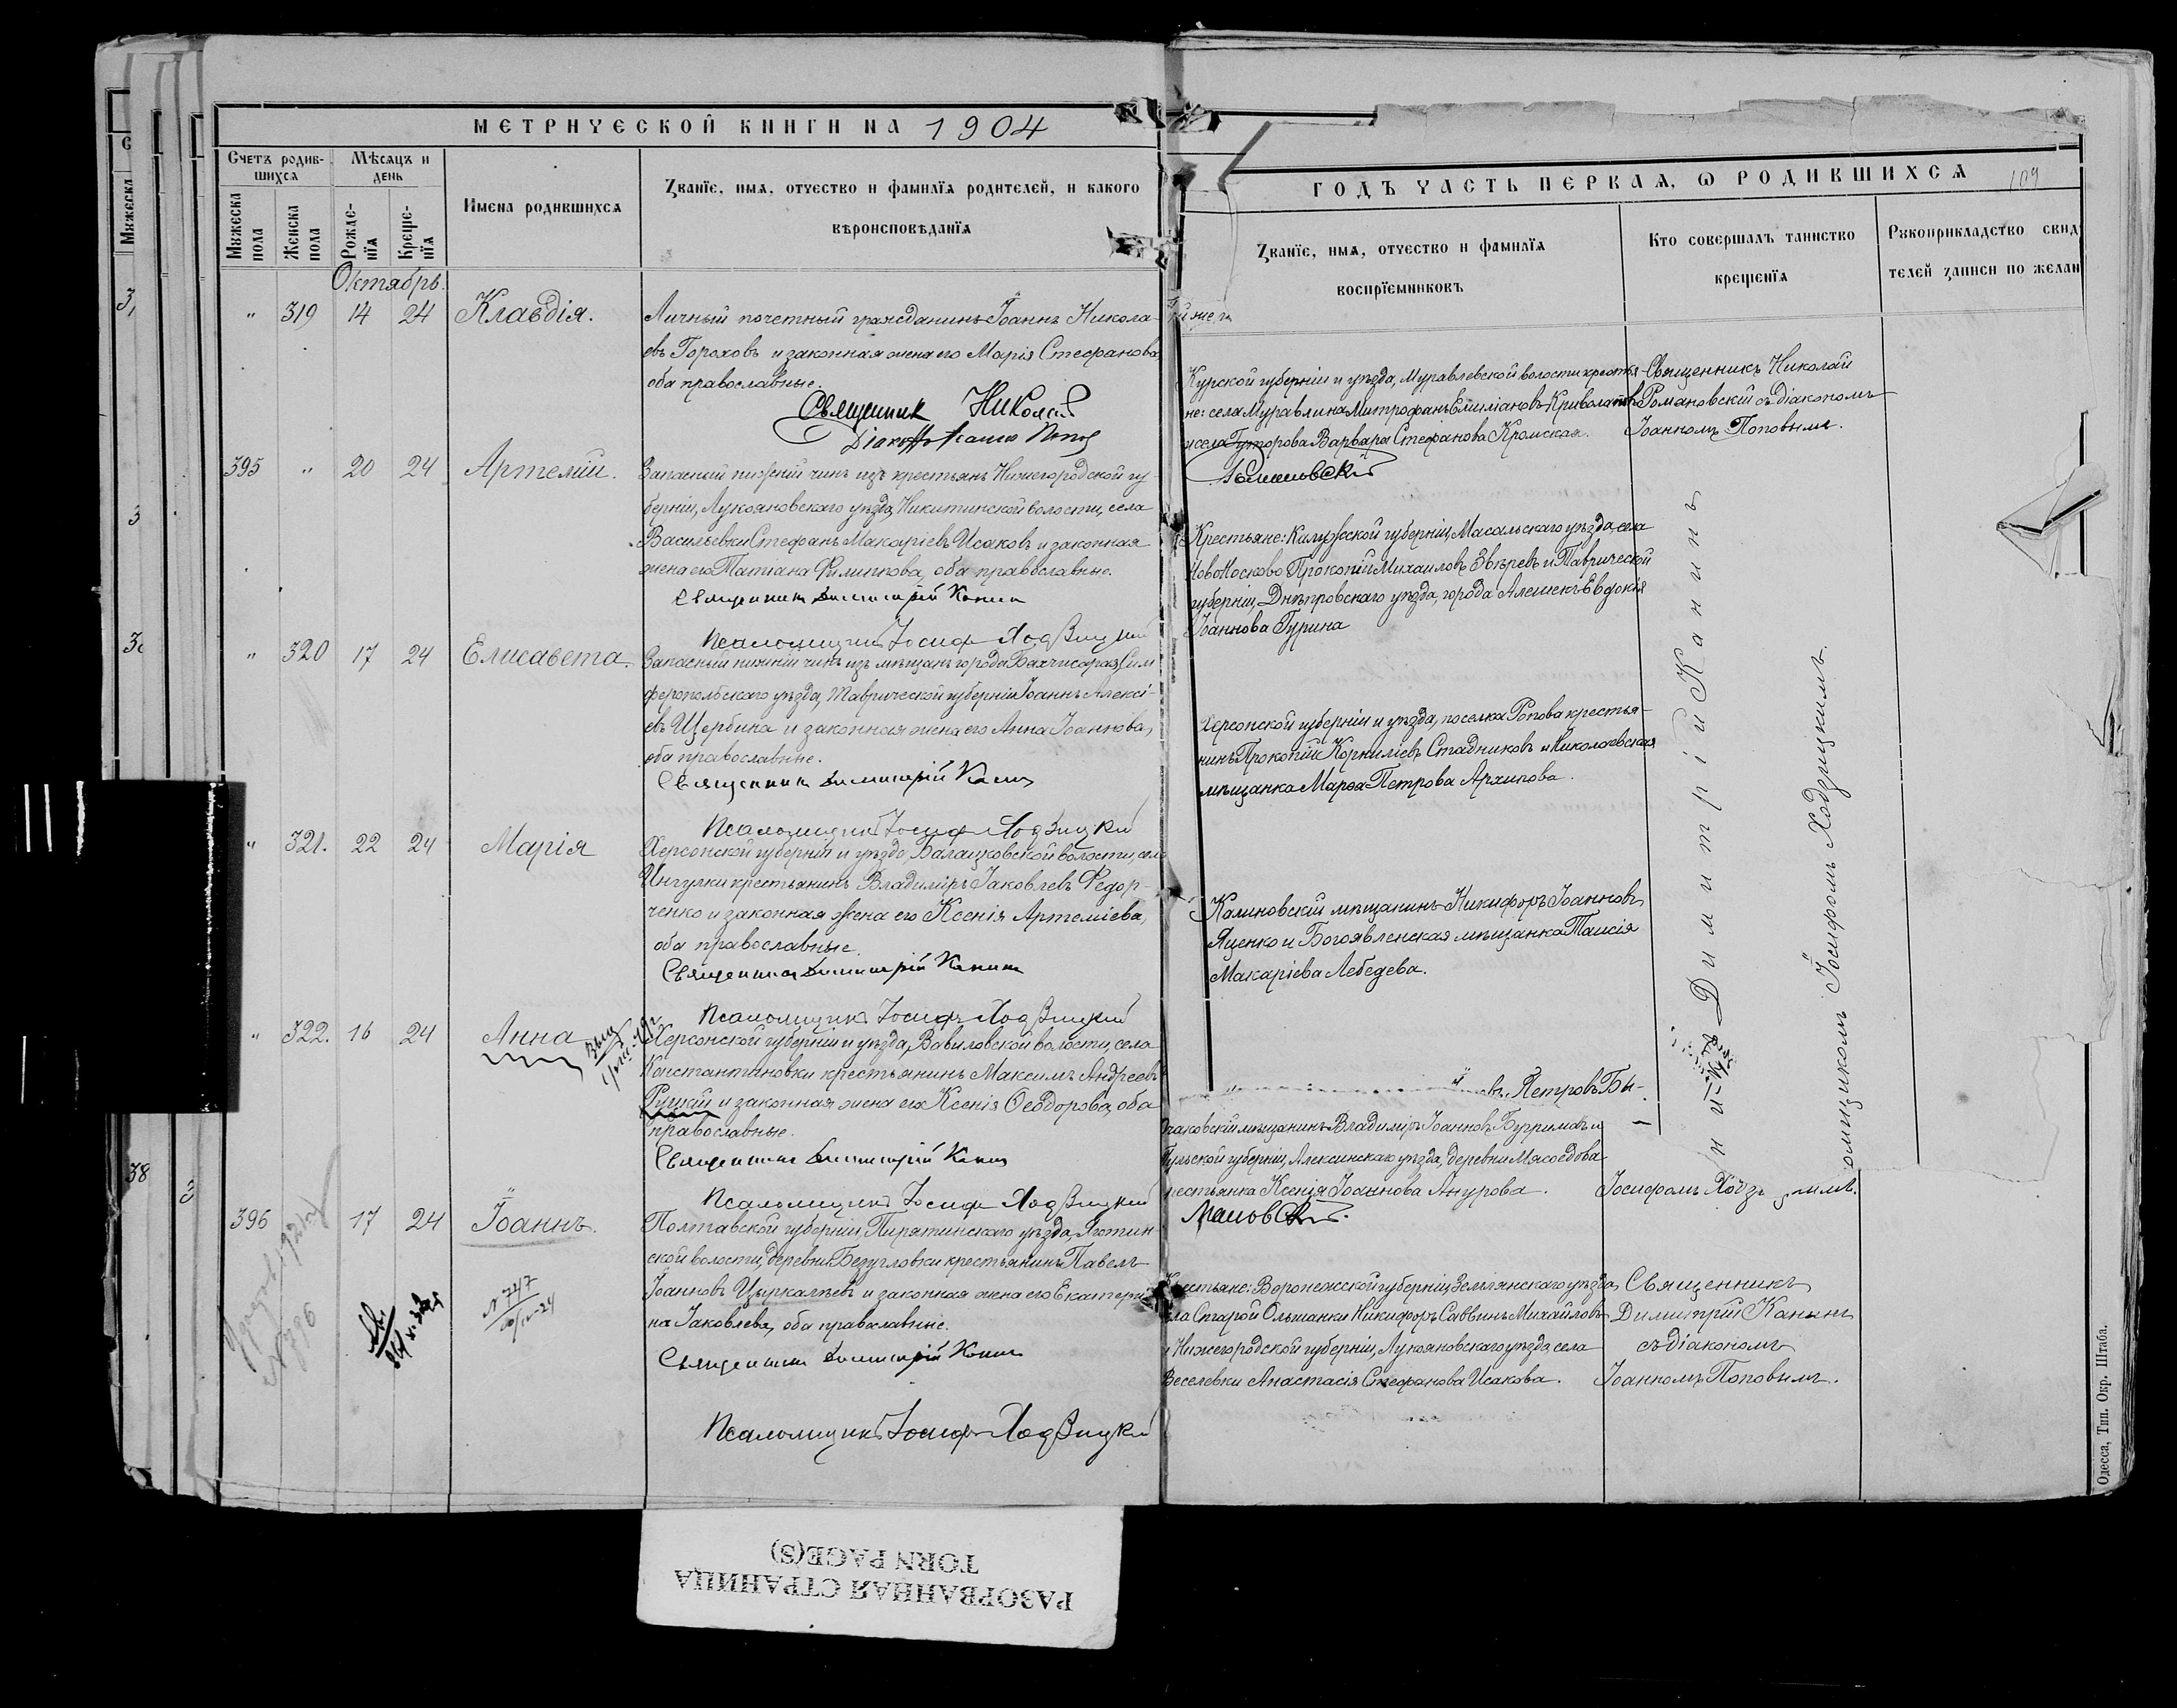 МЕТРИЧЕСКОЙ КНИГИ НА 1904
Счетъ родив-
шихся
Мѣсяцъ и
день
Мужеска
пола
Женска
пола
Рожде-
нія
Креще-
нія
Имена родившихся
Званіе, имя, отчество и фамилія родителей, и какого
вѣроисповѣданія
Октябрь.
" 319 14 24 Клавдія.
Личный почетный гражданинъ Іоаннъ Никола-
евъ Гороховъ и законная жена его Марія Стефанова,
оба православные.
Священник Николай
Діакон Іоанн Попов
395 " 20 24 Артемій.
Запасный нижній чинъ изъ крестьянъ Нижегородской гу
берніи, Лукояновскаго уѣзда, Никитинской волости, села
Васильевки Стефанъ Макаріевъ Исаковъ и законная
жена его Татіана Филиппова, оба православные.
Священникъ Димитрій Канинъ
Псаломщикъ Іосифъ Ходзицкій
" 320 17 24 Елисавета.
Запасный нижній чинъ изъ мѣщанъ города Бахчисарая, Сим
феропольскаго уѣзда, Таврической губерніи Іоаннъ Алексі-
евъ Щербина и законная жена его Анна Іоаннова,
оба православные.
Священникъ Димитрій Канинъ
Псаломщикъ Іосифъ Ходзицкій
" 321. 22 24 Марія
Херсонской губерніи и уѣзда, Балацковской волости, села
Ингулки крестьянинъ Владиміръ Іаковлевъ Федор-
ченко и законная жена его Ксенія Артеміева,
оба православные.
Священникъ Димитрій Канинъ
Псаломщикъ Іосифъ Ходзицкій
" 322. 16 24 Анна
Херсонской губерніи и уѣзда, Вавиловской волости, села
Константиновки крестьянинъ Максимъ Андреевъ
Руцкій и законная жена его Ксенія Ѳеодорова, оба
православные.
Священникъ Димитрій Канинъ
Псаломщикъ Іосифъ Ходзицкій
396 17 24 Іоаннъ.
Полтавской губерніи, Пирятинскаго уѣзда, Яготин
ской волости, деревни Безугловки крестьянинъ Павелъ
Іоанновъ Цыркалѣевъ и законная жена его Екатери-
на Іаковлева, оба православные.
Священникъ Димитрій Канинъ
Псаломщикъ Іосифъ Ходзицкій
N 747
ГОДЪ ЧАСТЬ ПЕРВАЯ, О РОДИВШИХСЯ
109
Званіе, имя, отчество и фамилія
воспріемниковъ
Кто совершалъ таинство
крещенія
Рукоприкладство свид
телей записи по желан
Курской губерніи и уѣзда, Муравлевской волости крестья
не: села Муравлина Митрофанъ Емиліановъ Криволаповъ
и села Гуторова Варвара Стефанова Кромская.
Священникъ Николай
Романовскій съ діакономъ
Іоанномъ Поповымъ.
Крестьяне: Калужской губерніи, Масальскаго уѣзда, села
Ново Носково Прокопій Михаиловъ Звѣревъ и Таврической
губерніи, Днѣпровскаго уѣзда, города Алешекъ Евдокія
Іоаннова Гурина
Херсонской губерніи и уѣзда, поселка Попова крестья-
нинъ Прокопій Корниліевъ Стадниковъ и Николаевская
мѣщанка Марѳа Петрова Архипова.
Калиновскій мѣщанинъ Никифоръ Іоанновъ
Яценко и Богоявленская мѣщанка Таисія
Макаріева Лебедева.
Димитрій Канинъ
омщикомъ Іосифомъ Ходзицкимъ.
въ Петровъ Бы-
аковскій мѣщанинъ Владиміръ Іоанновъ Бугримовъ и
Тульской губерніи, Алексинскаго уѣзда, деревни Мясоедова
рестьянка Ксенія Іоаннова Анурова.
Іосифомъ Ходз
мановскій.
Крестьяне: Воронежской губерніи, Землянскаго уѣзда,
ла Старой Ольшанки Никифоръ Саввинъ Михайловъ
и Нижегородской губерніи, Лукояновскаго уѣзда, села
Веселевки Анастасія Стефанова Исакова.
Священникъ
Димитрій Канинъ
съ діакономъ
Іоанномъ Поповымъ.
Одесса, Тип. Окр. Штаба.
РАЗОРВАННАЯ СТРАНИЦА
TORN PAGE(S)